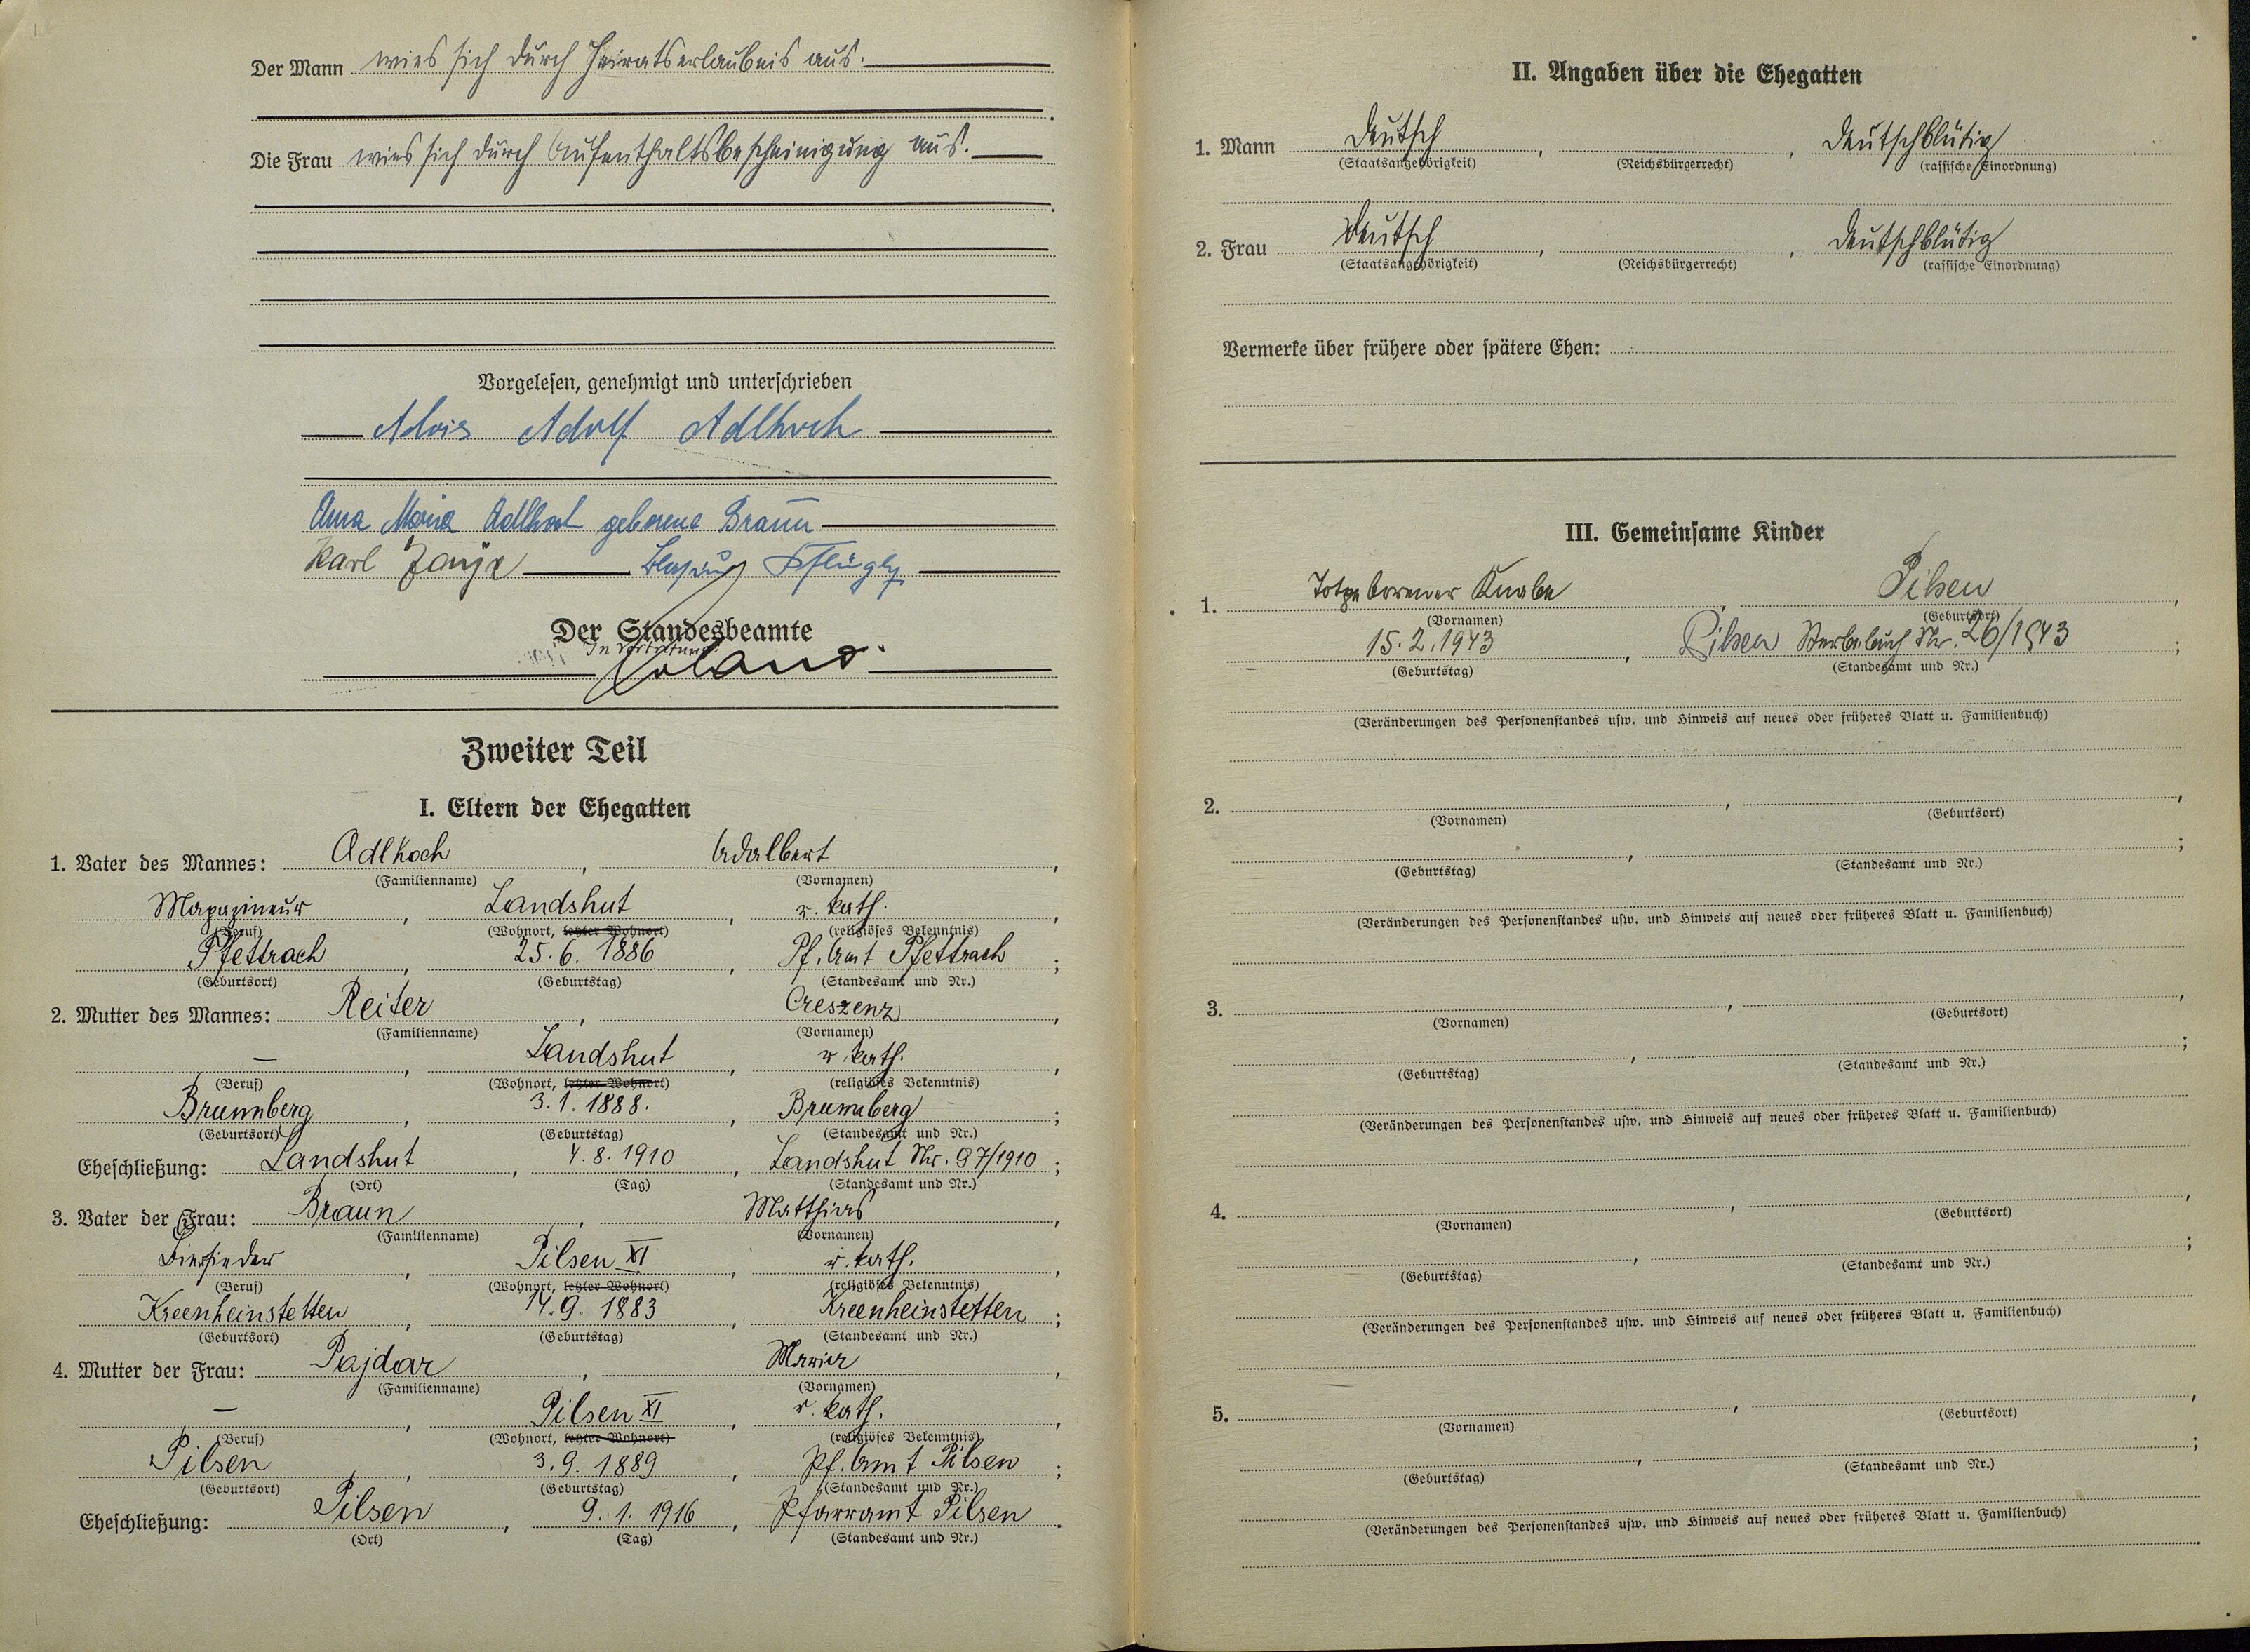 Der Mann wies sich durch Heiratserlaubnis aus.
Die Frau wies sich durch Aufenthaltsbescheinigung aus.
Vorgelesen, genehmigt und unterschrieben
Alois Adolf Adlhoch
Anna Maria Adlhoch geborene Braun
Karl
Der Standesbeamte
In Vertretung
Zweiter Teil
I. Eltern der Ehegatten
1. Vater des Mannes: Adlhoch, Adalbert,
(Familienname) (Vornamen)
Magazineur, Landshut, r. kath.,
(Beruf) (Wohnort, letzter Wohnort) (religiöses Bekenntnis)
Pfettrach, 25.6.1886, Pf. Amt Pfettrach;
(Geburtsort) (Geburtstag) (Standesamt und Nr.)
2. Mutter des Mannes: Reiter, Creszenz,
(Familienname) (Vornamen)
—, Landshut, r. kath.,
(Beruf) (Wohnort, letzter Wohnort) (religiöses Bekenntnis)
Brunnberg, 3.1.1888., Brunnberg;
(Geburtsort) (Geburtstag) (Standesamt und Nr.)
Eheschließung: Landshut, 4.8.1910, Landshut Nr. 97/1910;
(Ort) (Tag) (Standesamt und Nr.)
3. Vater der Frau: Braun, Matthias,
(Familienname) (Vornamen)
Biersieder, Pilsen XI, r. kath.,
(Beruf) (Wohnort, letzter Wohnort) (religiöses Bekenntnis)
Kreenheinstetten, 14.9.1883, Kreenheinstetten;
(Geburtsort) (Geburtstag) (Standesamt und Nr.)
4. Mutter der Frau: Pajdar, Maria,
(Familienname) (Vornamen)
—, Pilsen XI, r. kath.,
(Beruf) (Wohnort, letzter Wohnort) (religiöses Bekenntnis)
Pilsen, 3.9.1889, Pf. Amt Pilsen;
(Geburtsort) (Geburtstag) (Standesamt und Nr.)
Eheschließung: Pilsen, 9.1.1916, Pfarramt Pilsen.
(Ort) (Tag) (Standesamt und Nr.)
II. Angaben über die Ehegatten
1. Mann Deutsch, , Deutschblütig
(Staatsangehörigkeit) (Reichsbürgerrecht) (rassische Einordnung)
2. Frau Deutsch, , Deutschblütig
(Staatsangehörigkeit) (Reichsbürgerrecht) (rassische Einordnung)
Vermerke über frühere oder spätere Ehen:
III. Gemeinsame Kinder
1. Totgeborener Knabe, Pilsen,
(Vornamen) (Geburtsort)
15.2.1943, Pilsen Sterbebuch Nr. 26/1943;
(Geburtstag) (Standesamt und Nr.)
(Veränderungen des Personenstandes usw. und Hinweis auf neues oder früheres Blatt u. Familienbuch)
2. , ,
(Vornamen) (Geburtsort)
, ;
(Geburtstag) (Standesamt und Nr.)
(Veränderungen des Personenstandes usw. und Hinweis auf neues oder früheres Blatt u. Familienbuch)
3. , ,
(Vornamen) (Geburtsort)
, ;
(Geburtstag) (Standesamt und Nr.)
(Veränderungen des Personenstandes usw. und Hinweis auf neues oder früheres Blatt u. Familienbuch)
4. , ,
(Vornamen) (Geburtsort)
, ;
(Geburtstag) (Standesamt und Nr.)
(Veränderungen des Personenstandes usw. und Hinweis auf neues oder früheres Blatt u. Familienbuch)
5. , ,
(Vornamen) (Geburtsort)
, ;
(Geburtstag) (Standesamt und Nr.)
(Veränderungen des Personenstandes usw. und Hinweis auf neues oder früheres Blatt u. Familienbuch)